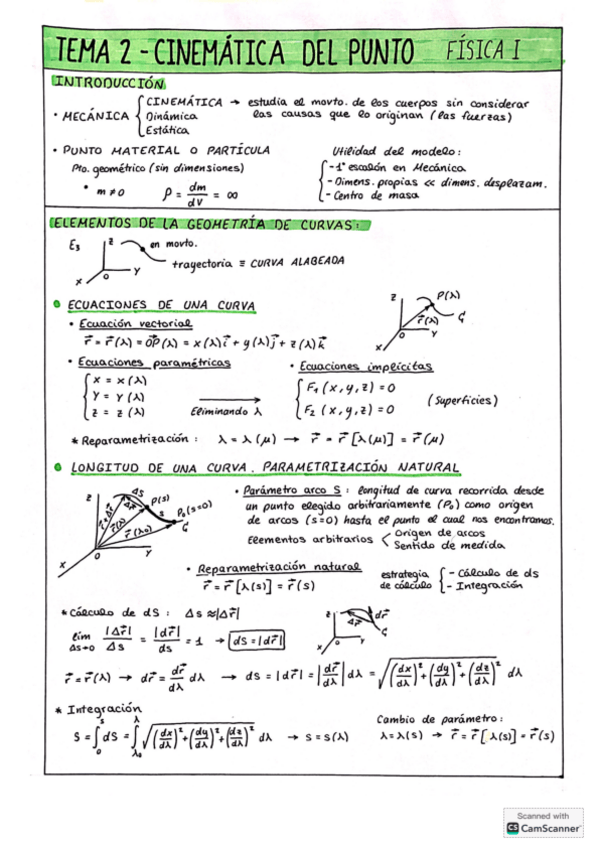 TEMA 2 - CINEMÁTICA DEL PUNTO FÍSICA I
INTRODUCCIÓN
• MECÁNICA { CINEMÁTICA → estudia el movto. de los cuerpos sin considerar las causas que lo originan (las fuerzas)
Dinámica
Estática
• PUNTO MATERIAL O PARTÍCULA
Pto. geométrico (sin dimensiones)
• m ≠ 0 ρ = dm/dV = ∞
Utilidad del modelo:
- 1º escalón en Mecánica
- Dimens. propias << dimens. desplazam.
- Centro de masa
ELEMENTOS DE LA GEOMETRÍA DE CURVAS:
E₃ z en movto.
trayectoria ≡ CURVA ALABEADA
x O y
ECUACIONES DE UNA CURVA
• Ecuación vectorial
r⃗ = r⃗(λ) = OP⃗(λ) = x(λ)i⃗ + y(λ)j⃗ + z(λ)k⃗
z P(λ) r⃗(λ) O x y
• Ecuaciones paramétricas
x = x(λ)
y = y(λ)
z = z(λ)
Eliminando λ
• Ecuaciones implícitas
F₁(x, y, z) = 0
F₂(x, y, z) = 0
(Superficies)
* Reparametrización: λ = λ(μ) → r⃗ = r⃗[λ(μ)] = r⃗(μ)
LONGITUD DE UNA CURVA. PARAMETRIZACIÓN NATURAL
z ΔS P(s) Δr⃗ s P₀(s=0) r⃗+Δr⃗ r⃗(λ) r⃗(λ₀) x O y
• Parámetro arco S: longitud de curva recorrida desde
un punto elegido arbitrariamente (P₀) como origen
de arcos (s=0) hasta el punto el cual nos encontramos.
Elementos arbitrarios < Origen de arcos
Sentido de medida
• Reparametrización natural
r⃗ = r⃗[λ(s)] = r⃗(s)
estrategia de cálculo { - Cálculo de ds
- Integración
* Cálculo de dS: Δs ≈ |Δr⃗|
z dr⃗ Δr⃗ O x y
lím Δs→0 |Δr⃗|/Δs = |dr⃗|/ds = 1 → ds = |dr⃗|
r⃗ = r⃗(λ) → dr⃗ = dr⃗/dλ dλ → ds = |dr⃗| = |dr⃗/dλ| dλ = √((dx/dλ)² + (dy/dλ)² + (dz/dλ)²) dλ
* Integración
S = ∫₀ˢ dS = ∫λ₀^λ √((dx/dλ)² + (dy/dλ)² + (dz/dλ)²) dλ → s = s(λ)
Cambio de parámetro:
λ = λ(s) → r⃗ = r⃗[λ(s)] = r⃗(s)
Scanned with
CS CamScanner